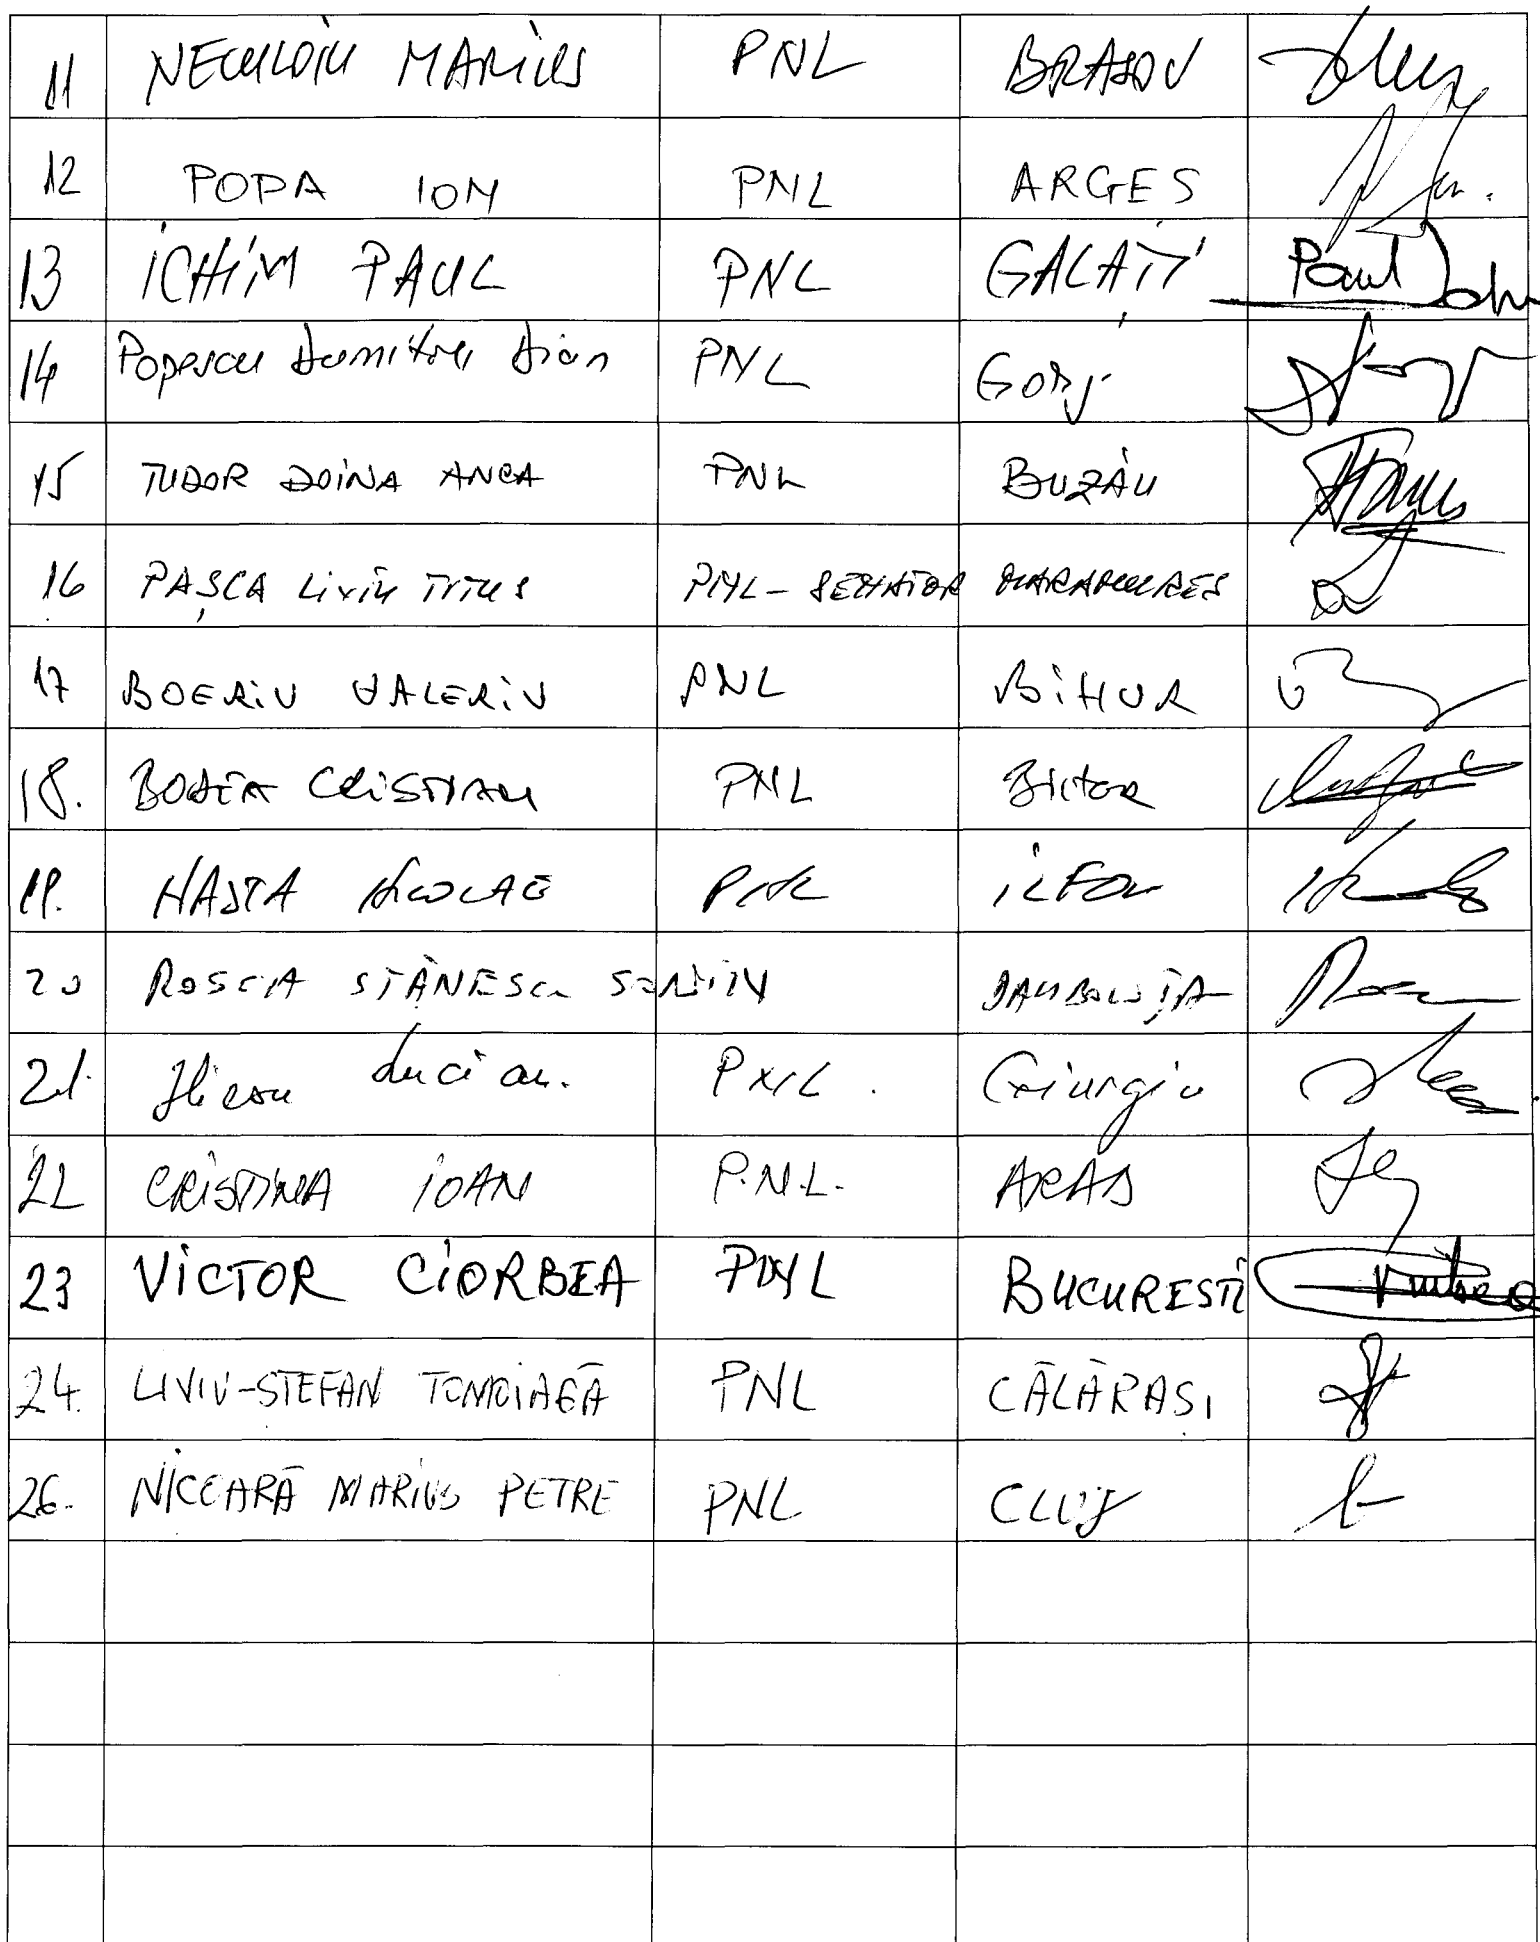 11 NECULOIU MARIUS PNL BRASOV
12 POPA ION PNL ARGES
13 ICHIM PAUL PNL GALATI Paul
14 Popescu Dumitru Dian PNL Gorj
15 TUDOR DOINA ANCA PNL BUZĂU
16 PAȘCA LIVIU TITUS PNL - SENATOR MARAMURES
17 BOERIU VALERIU PNL BIHOR
18. BODEA CRISTIAN PNL BIHOR
19. NASTA NICOLAE PNL ILFOV
20 ROSCA STĂNESCU SORIN DAMBOVIȚA
21. Iliescu Lucian. PNL. Giurgiu
22 CRISTINA IOAN P.N.L. ARAD
23 VICTOR CIORBEA PNL BUCURESTI
24. LIVIU-STEFAN TOMOIAGĂ PNL CĂLĂRAȘI
26. NICOARĂ MARIUS PETRE PNL CLUJ